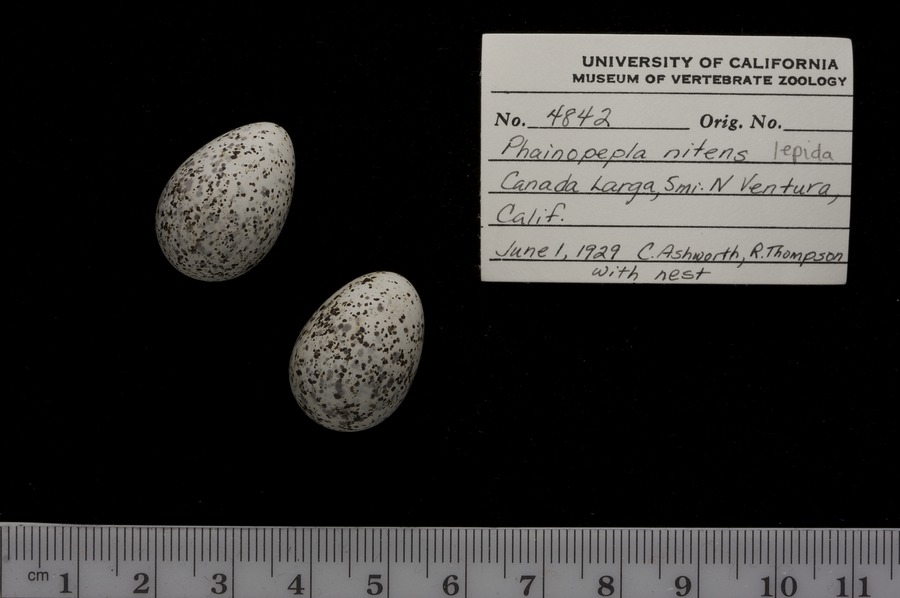 UNIVERSITY OF CALIFORNIA
MUSEUM OF VERTEBRATE ZOOLOGY
No. 4842 Orig. No.
Phainopepla nitens lepida
Canada Larga, 5mi. N Ventura,
Calif.
June 1, 1929 C. Ashworth, R. Thompson
with nest
cm 1 2 3 4 5 6 7 8 9 10 11